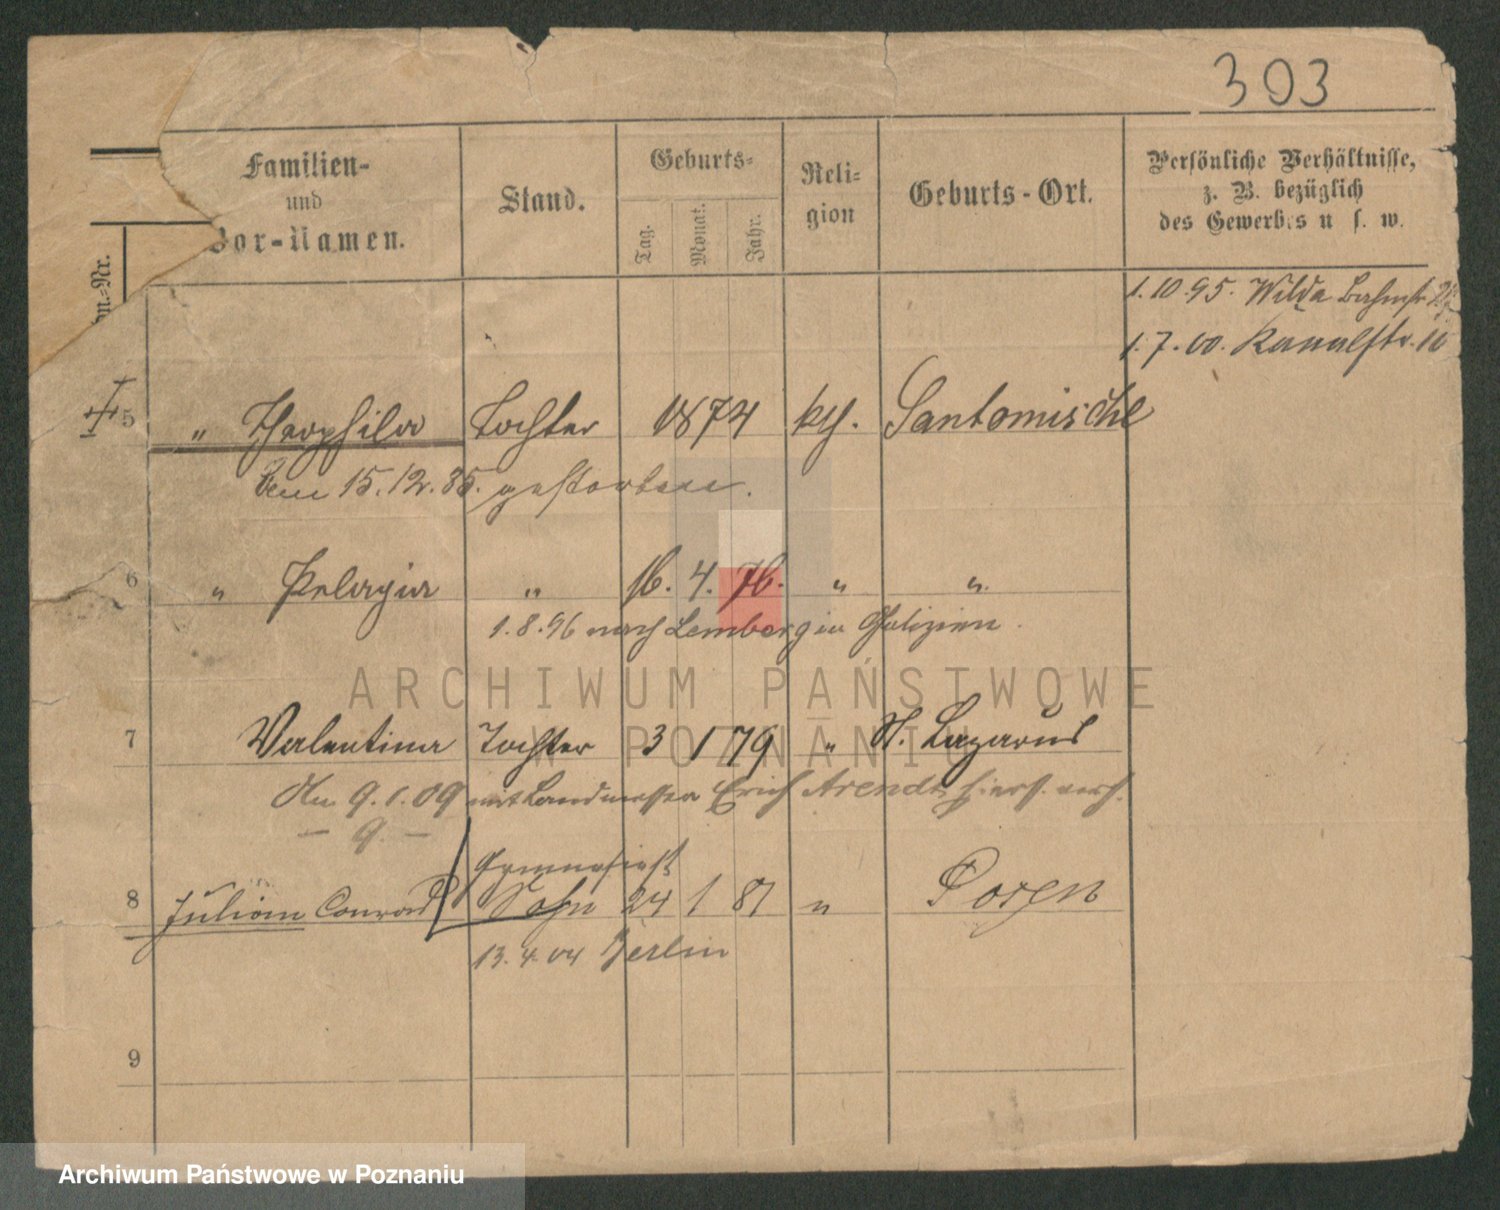 303
Familien-
und
Vor-Namen.
Stand.
Geburts-
Tag.
Monat.
Jahr.
Reli-
gion
Geburts-Ort.
Persönliche Verhältnisse,
z. B. bezüglich
des Gewerbes u. s. w.
1.10.95. Wilda
1.7.00. Kanalstr. 10
5 " Theophila Tochter 1874 kth. Santomischel
Am 15.12.85. gestorben.
6 " Pelagia " 16. 4. 76. " "
1.8.96 nach Lemberg in Galizien.
7 Valentina Tochter 3 1 79 " St. Lazarus
Am 9.1.09 mit Landmesser Erich Arendt verh.
— 9. —
Gymnasiast
8 Julian Conrad Sohn 24 1 87 " Posen
13.4.04 Berlin
9
ARCHIWUM PAŃSTWOWE
W POZNANIU
Archiwum Państwowe w Poznaniu